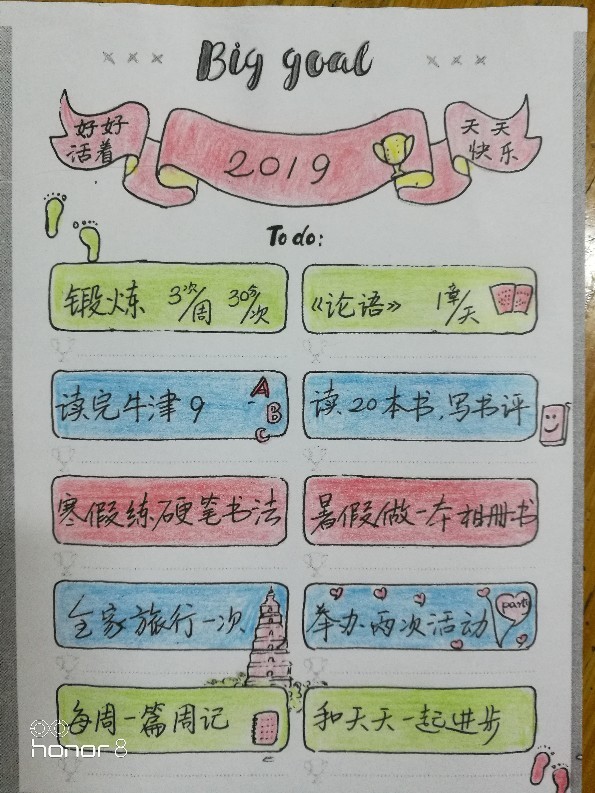 Big goal
好好
活着
2019
天天
快乐
To do:
锻炼 3次/周 30分/次
《论语》 1章/天
读完牛津9
A
B
C
读20本书,写书评
寒假练硬笔书法
暑假做一本相册书
全家旅行一次
举办两次活动
party
每周一篇周记
和天天一起进步
honor 8